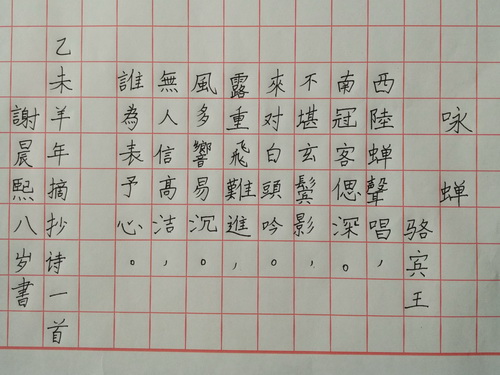 咏蝉
骆宾王
西陸蝉聲唱，
南冠客偲深。
不堪玄鬓影，
來对白頭吟。
露重飛難進，
風多響易沉。
無人信高洁，
誰為表予心。
乙未羊年摘抄诗一首
謝晨熙八岁書